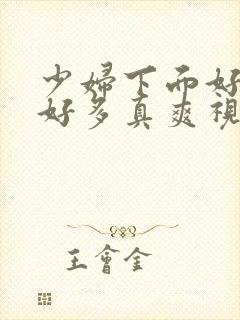 少婦下面好
好多真爽視
王會金